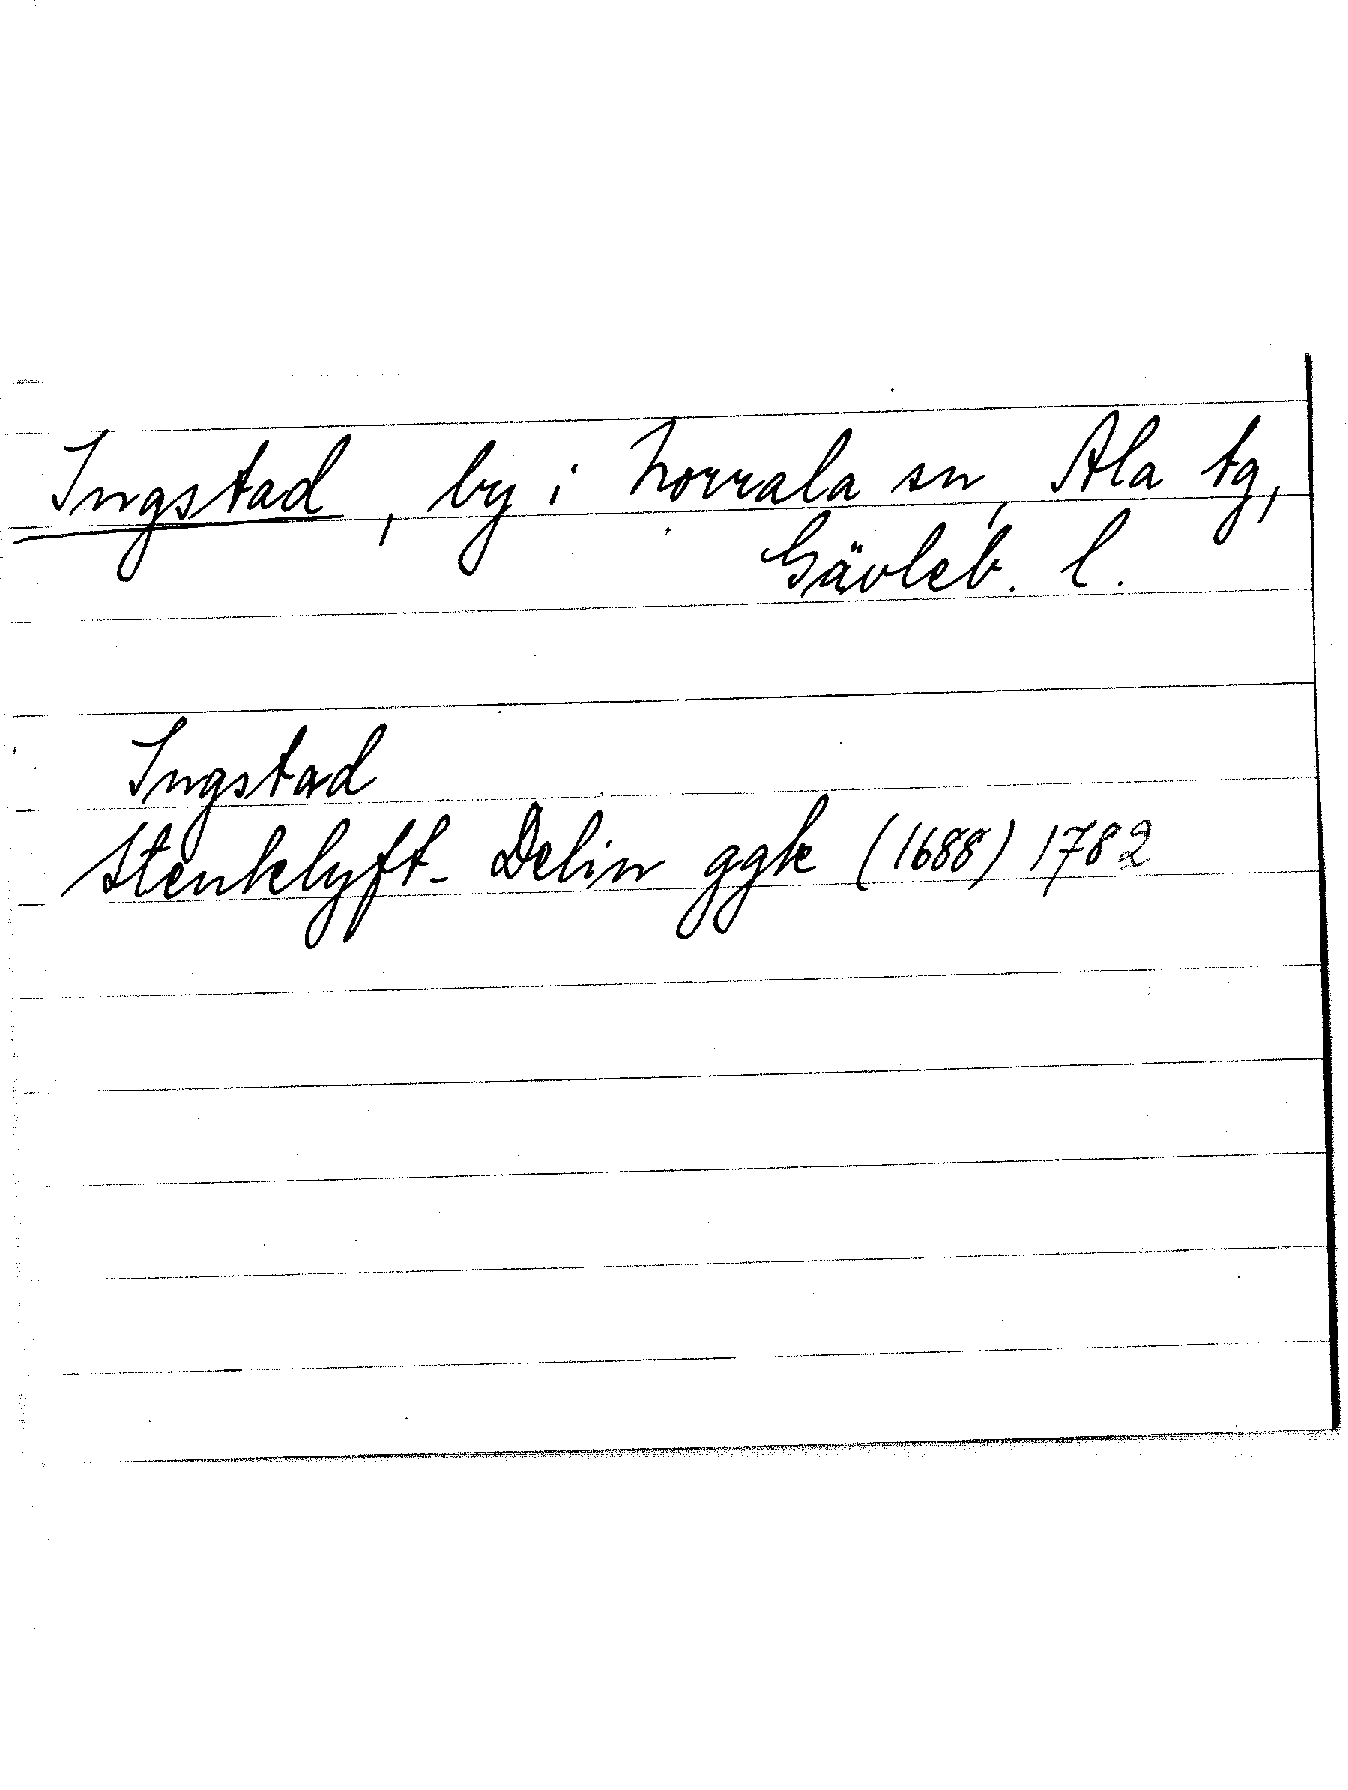 Ingstad, by i Norrala sn, Ala tg,
Gävleb. l.
Ingstad
Stenklyft- Delin ggk (1688) 1782